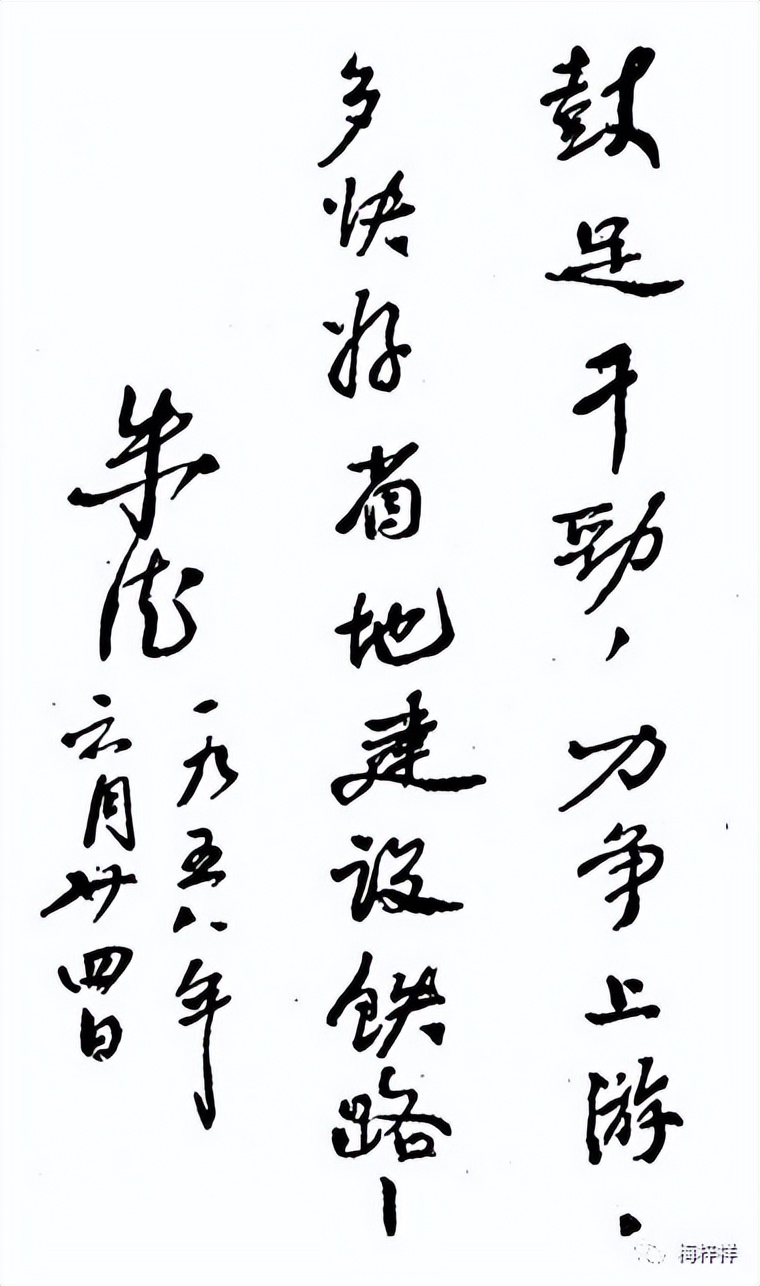 鼓足干劲，力争上游，
多快好省地建设铁路！
朱德
一九五八年
六月廿四日
梅梓祥